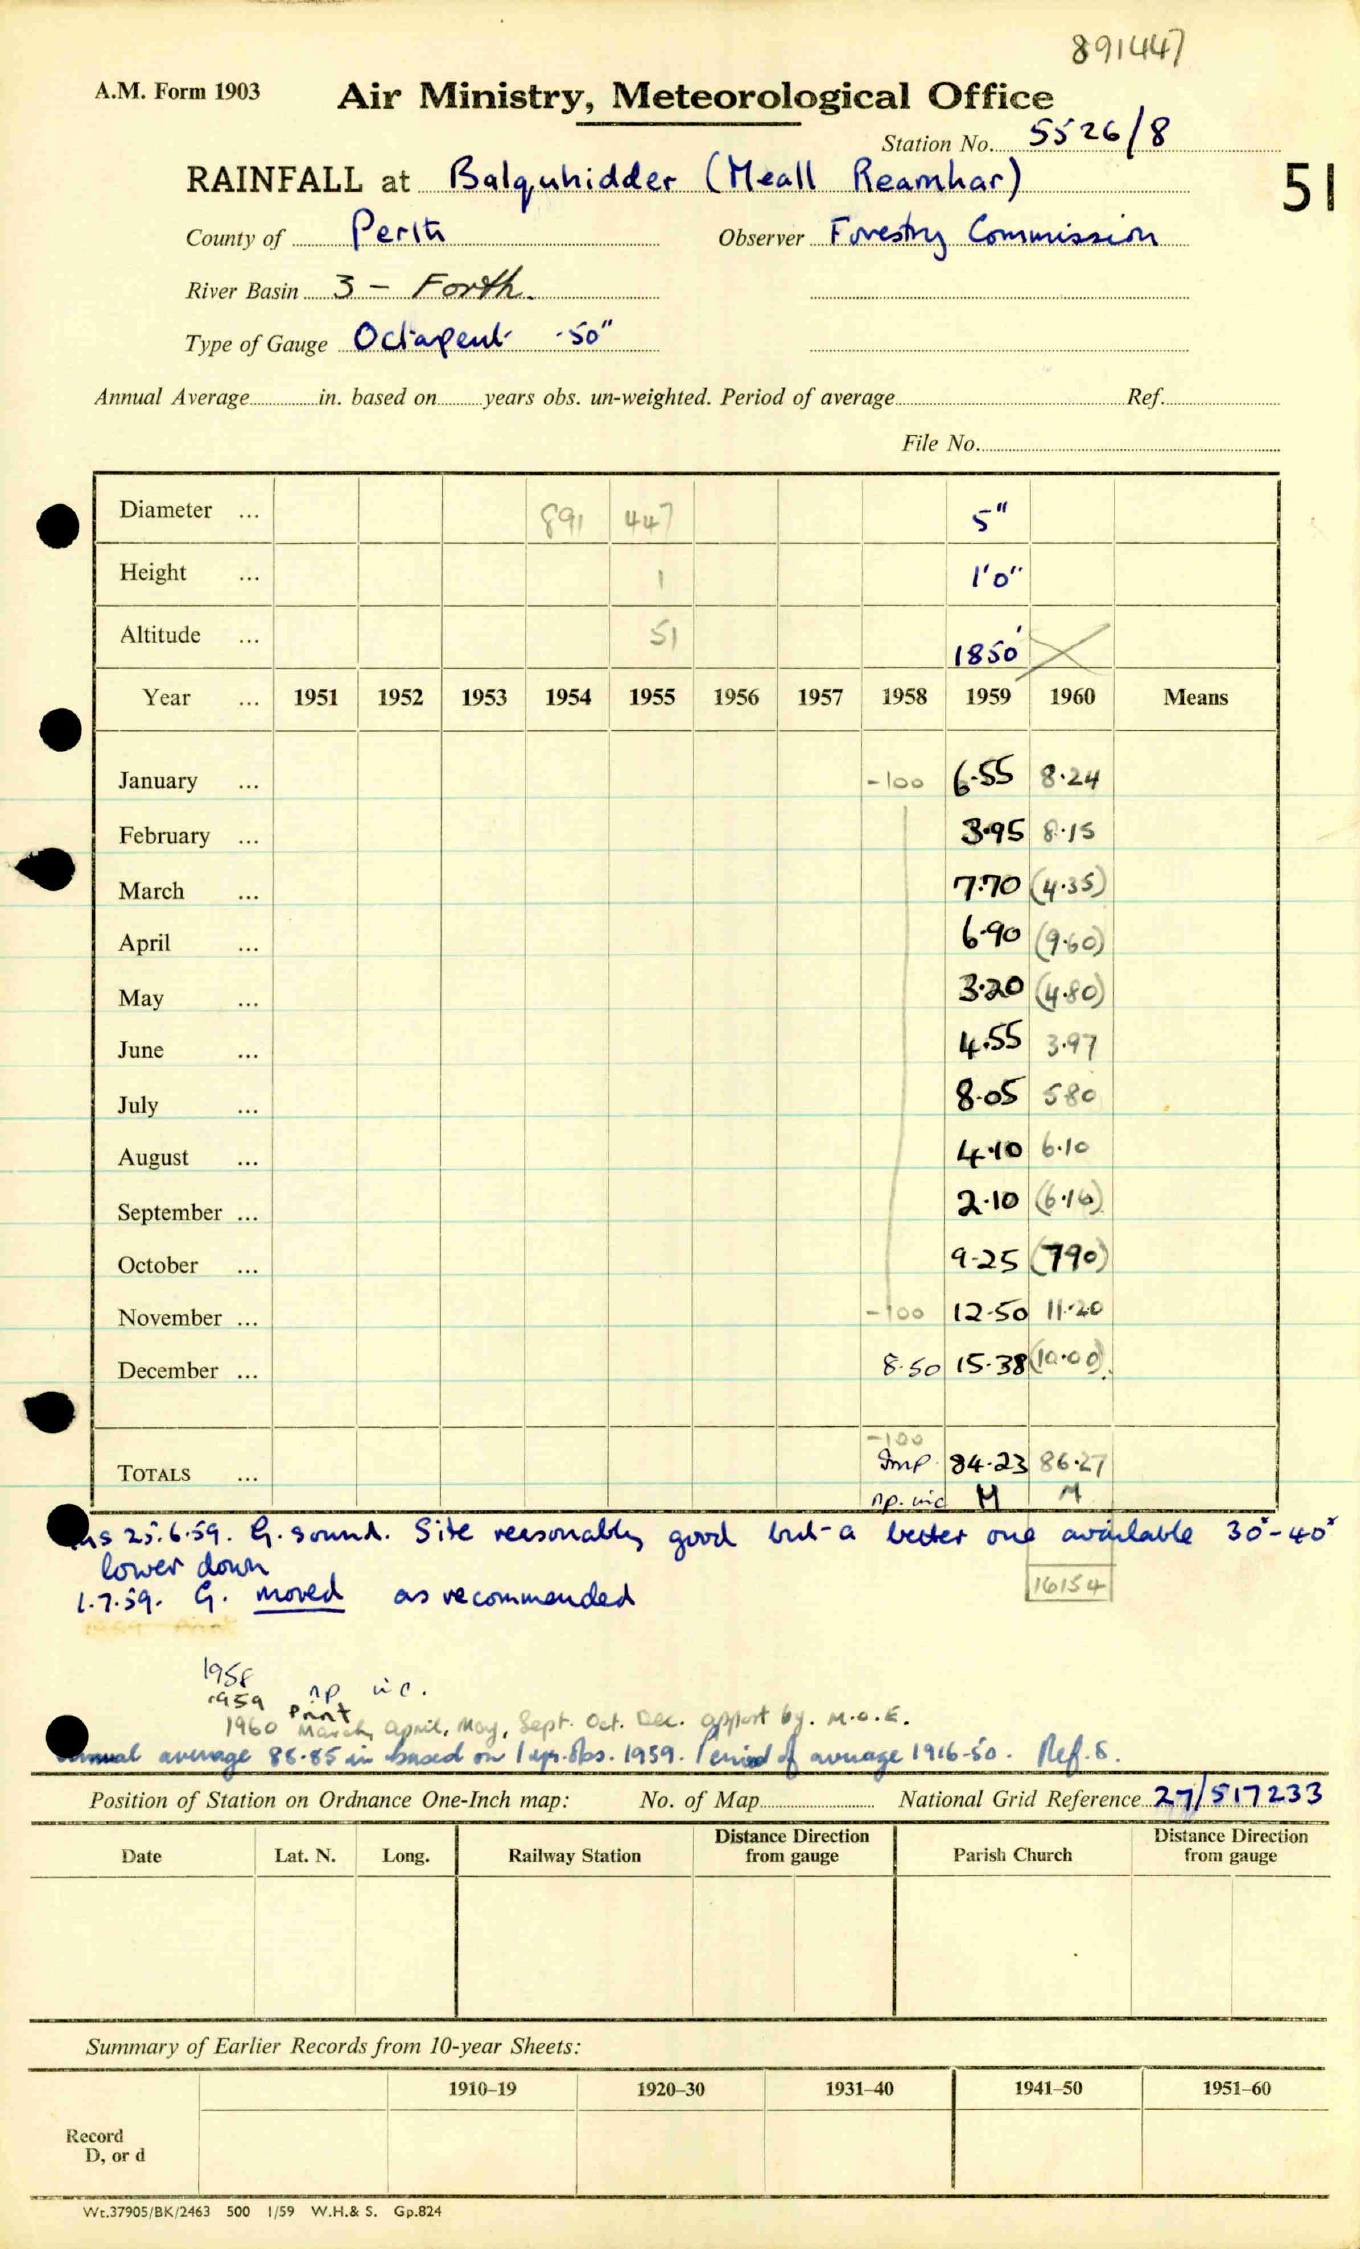 891447
A.M. Form 1903 Air Ministry, Meteorological Office
Station No. 5526/8
RAINFALL at Balquhidder (Meall Reamhar) 51
County of Perth Observer Forestry Commission
River Basin 3 - Forth.
Type of Gauge Octapent .50"
Annual Average in. based on years obs. un-weighted. Period of average Ref.
File No.
Diameter ... 891 447 5"
Height ... 1 1'0"
Altitude ... 51 1850'
Year ... 1951 1952 1953 1954 1955 1956 1957 1958 1959 1960 Means
January ... -100 6.55 8.24
February ... 3.95 8.15
March ... 7.70 (4.35)
April ... 6.90 (9.60)
May ... 3.20 (4.80)
June ... 4.55 3.97
July ... 8.05 580
August ... 4.10 6.10
September ... 2.10 (6.16)
October ... 9.25 (790)
November ... -100 12.50 11.20
December ... 8.50 15.38 (10.00)
-100
TOTALS ... Imp. 84.23 86.27
np. inc M M
ins 25.6.59. G. sound. Site reasonably good but a better one available 30'-40'
lower down
16154
1.7.59. G. moved as recommended
1958
1959 np inc.
Print
1960 March, April, May, Sept. Oct. Dec. apport by. M.O.E.
Annual average 85.85 in based on 1 yrs. obs. 1959. Period of average 1916-50. Ref. S.
Position of Station on Ordnance One-Inch map: No. of Map National Grid Reference 27/517233
Date Lat. N. Long. Railway Station Distance Direction from gauge Parish Church Distance Direction from gauge
Summary of Earlier Records from 10-year Sheets:
1910–19 1920–30 1931–40 1941–50 1951–60
Record
D, or d
Wt.37905/BK/2463 500 1/59 W.H.& S. Gp.824